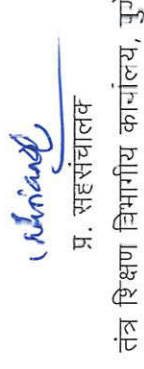 प्र. सहसंचालक
तंत्र शिक्षण विभागीय कार्यालय,